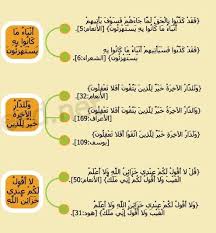 {فَقَدْ كَذَّبُوا بِالْحَقِّ لَمَّا جَاءَهُمْ فَسَوْفَ يَأْتِيهِمْ
أَنْبَاءُ مَا كَانُوا بِهِ يَسْتَهْزِئُونَ} [الأنعام:5].
{فَقَدْ كَذَّبُوا فَسَيَأْتِيهِمْ أَنْبَاءُ مَا كَانُوا بِهِ
يَسْتَهْزِئُونَ} [الشعراء:6].
أَنْبَاءُ مَا
كَانُوا بِهِ
يَسْتَهْزِئُونَ
{وَلَلدَّارُ الْآخِرَةُ خَيْرٌ لِلَّذِينَ يَتَّقُونَ أَفَلَا تَعْقِلُونَ}
[الأنعام:32].
{وَالدَّارُ الْآخِرَةُ خَيْرٌ لِلَّذِينَ يَتَّقُونَ أَفَلَا تَعْقِلُونَ}
[الأعراف:169].
{وَلَدَارُ الْآخِرَةِ خَيْرٌ لِلَّذِينَ اتَّقَوْا أَفَلَا تَعْقِلُونَ}
[يوسف:109].
وَلَلدَّارُ
الْآخِرَةُ
خَيْرٌ لِلَّذِينَ
{قُلْ لَا أَقُولُ لَكُمْ عِنْدِي خَزَائِنُ اللَّهِ وَلَا أَعْلَمُ
الْغَيْبَ وَلَا أَقُولُ لَكُمْ إِنِّي مَلَكٌ} [الأنعام:50].
{وَلَا أَقُولُ لَكُمْ عِنْدِي خَزَائِنُ اللَّهِ وَلَا أَعْلَمُ
الْغَيْبَ وَلَا أَقُولُ إِنِّي مَلَكٌ} [هود:31].
قُلْ لَا أَقُولُ
لَكُمْ عِنْدِي
خَزَائِنُ اللَّهِ